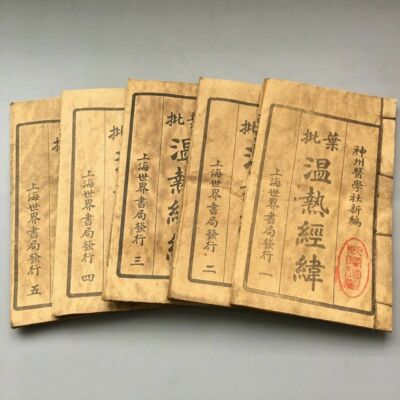 神州醫學社新編
葉批
温熱經緯
上海世界書局發行 一
葉批
温
上海世界書局發行 二
葉批
温熱經緯
上海世界書局發行 三
批
上海世界書局發行 四
上海世界書局發行 五